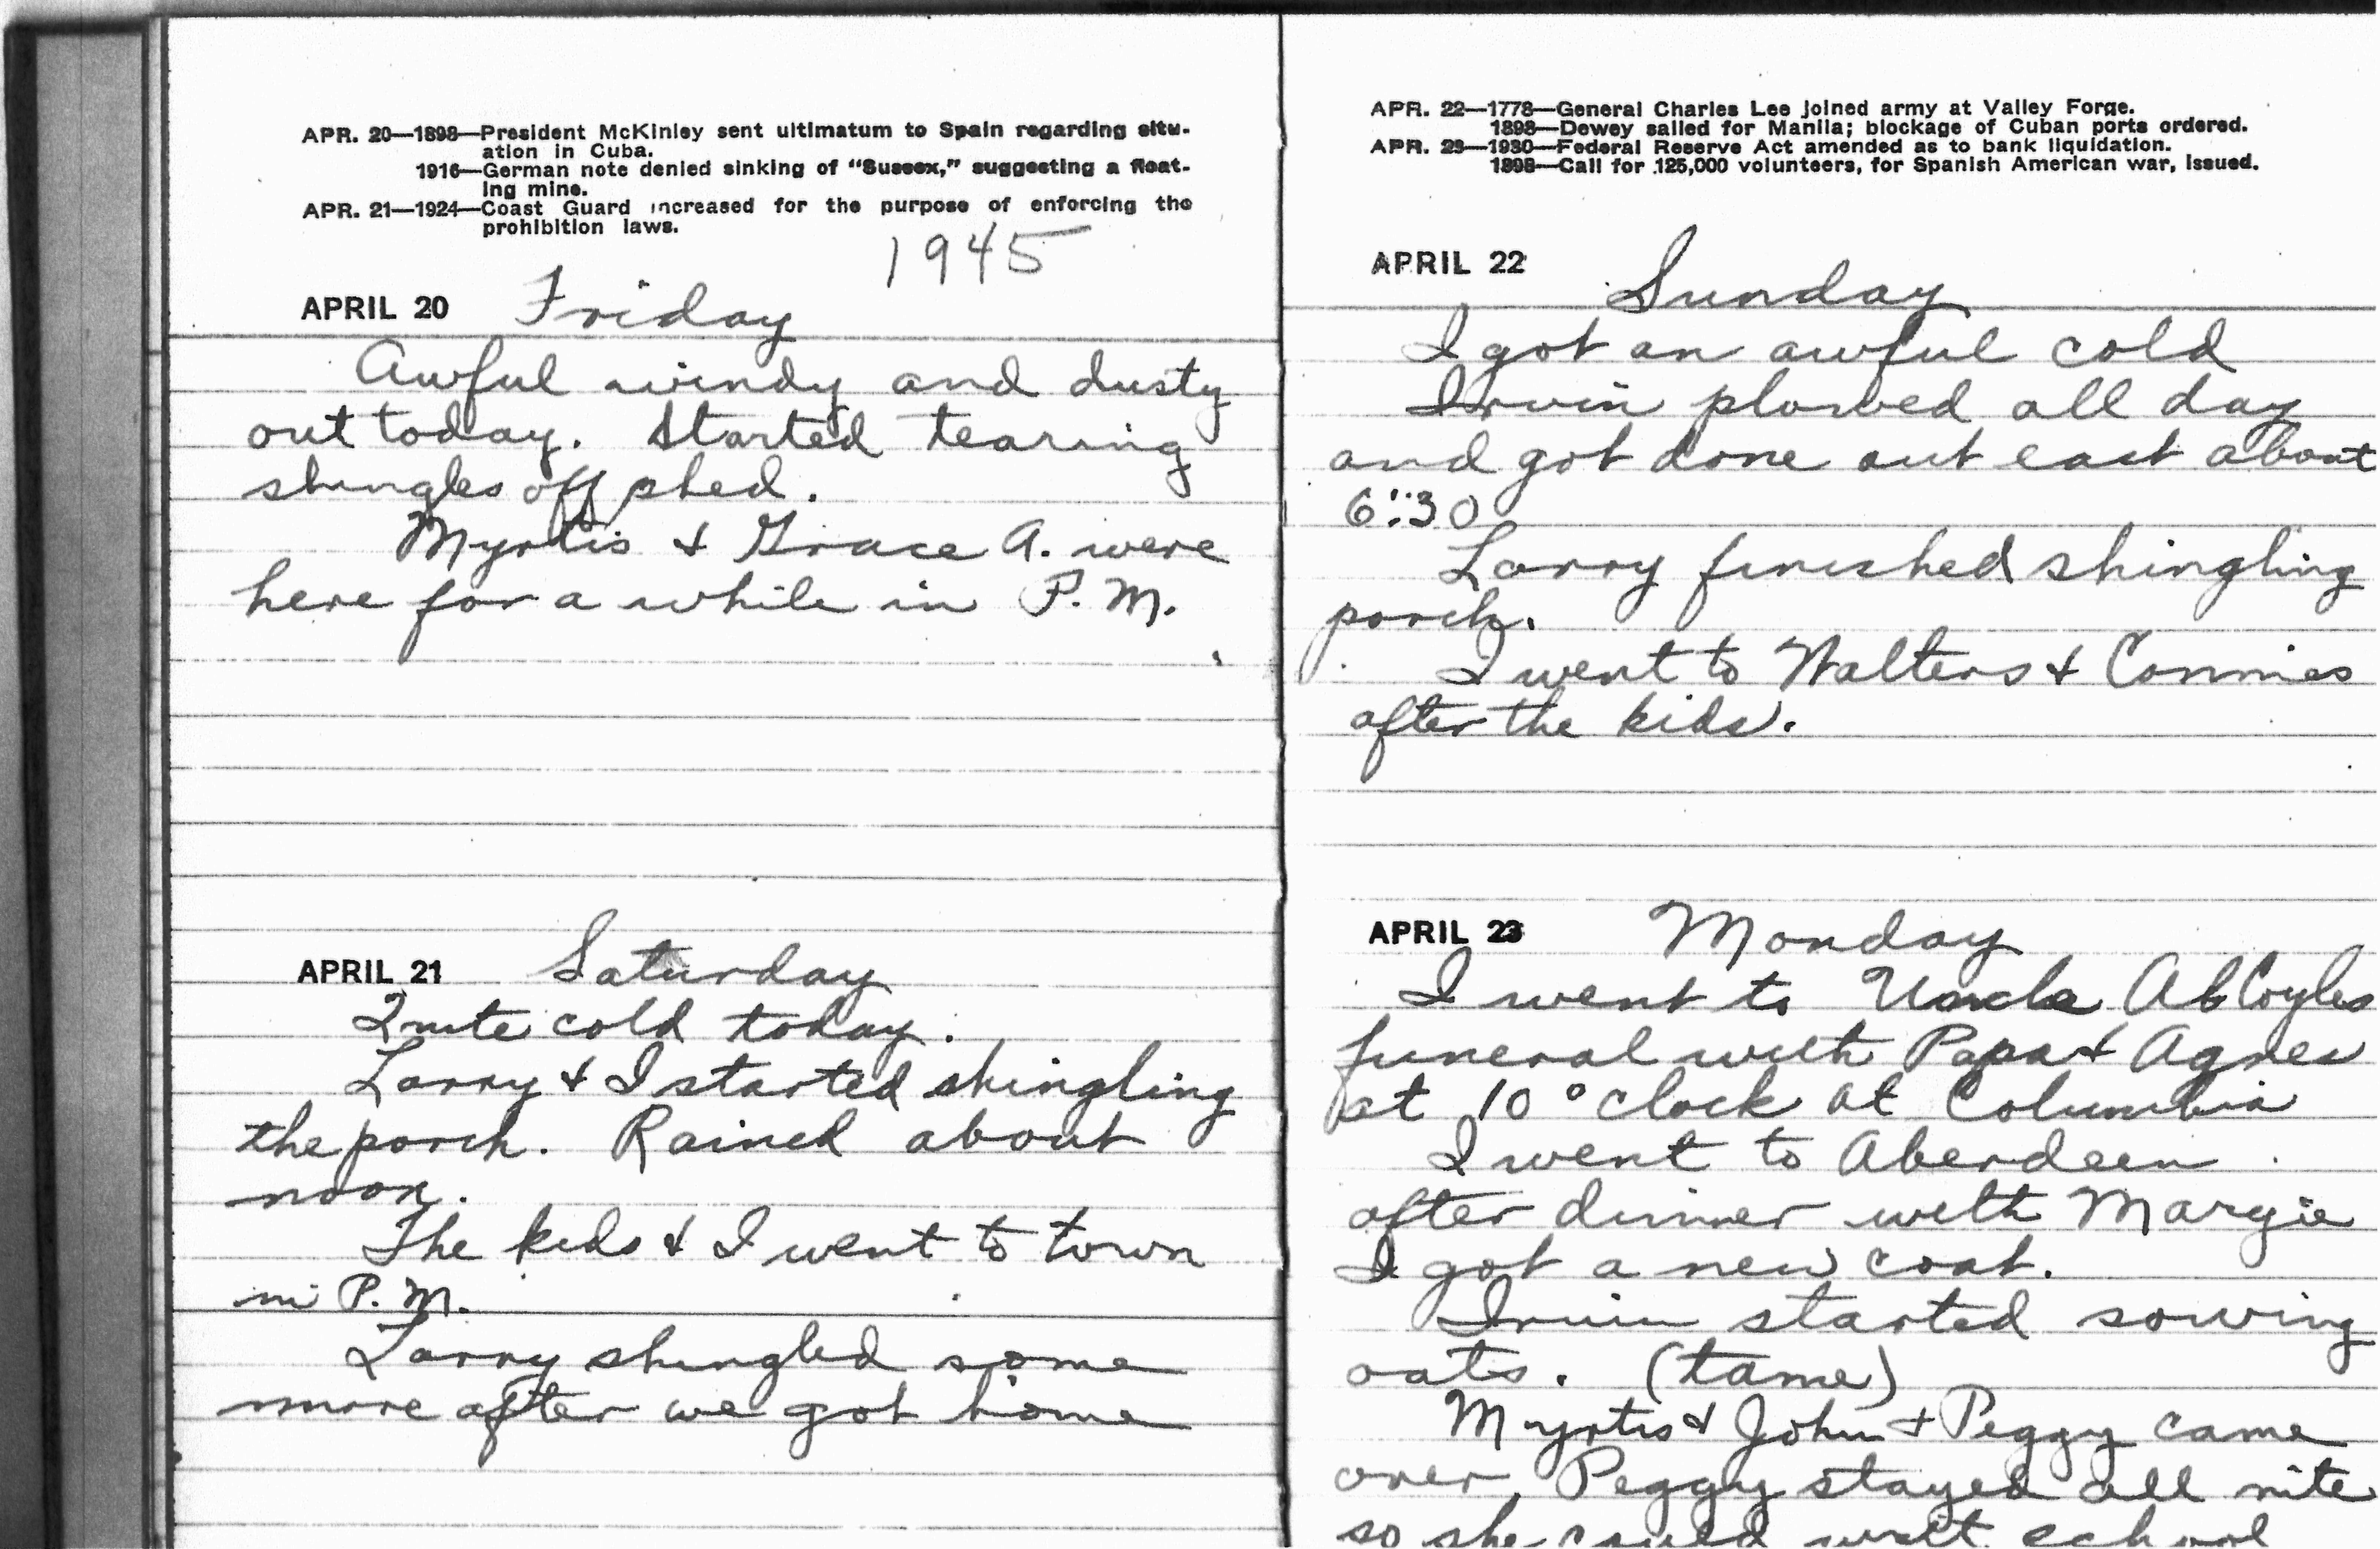 APR. 20—1898—President McKinley sent ultimatum to Spain regarding situ-
ation in Cuba.
1916—German note denied sinking of "Sussex," suggesting a float-
ing mine.
APR. 21—1924—Coast Guard increased for the purpose of enforcing the
prohibition laws.
1945
APRIL 20 Friday
Awful windy and dusty
out today. Started tearing
shingles off shed.
Myrtis & Grace A. were
here for a while in P.M.
APRIL 21 Saturday
Quite cold today.
Larry & I started shingling
the porch. Rained about
noon.
The kids & I went to town
in P.M.
Larry shingled some
more after we got home
APR. 22—1778—General Charles Lee joined army at Valley Forge.
1898—Dewey sailed for Manila; blockage of Cuban ports ordered.
APR. 23—1930—Federal Reserve Act amended as to bank liquidation.
1898—Call for 125,000 volunteers, for Spanish American war, issued.
APRIL 22 Sunday
I got an awful cold
Irwin plowed all day
and got done out east about
6:30
Larry finished shingling
porch.
I went to Walters & Connies
after the kids.
APRIL 23 Monday
I went to Uncle Ab Coyles
funeral with Papa & Agnes
at 10 °clock at Columbia
I went to Aberdeen
after dinner with Margie
I got a new coat.
Irwin started sowing
oats. (tame)
Myrtis & John & Peggy came
over. Peggy stayed all nite
so she could visit school